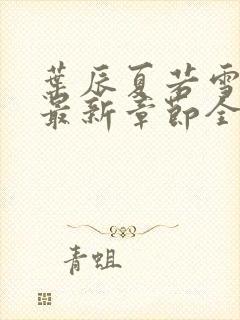 葉辰夏若雪
最新章節全
青蛆